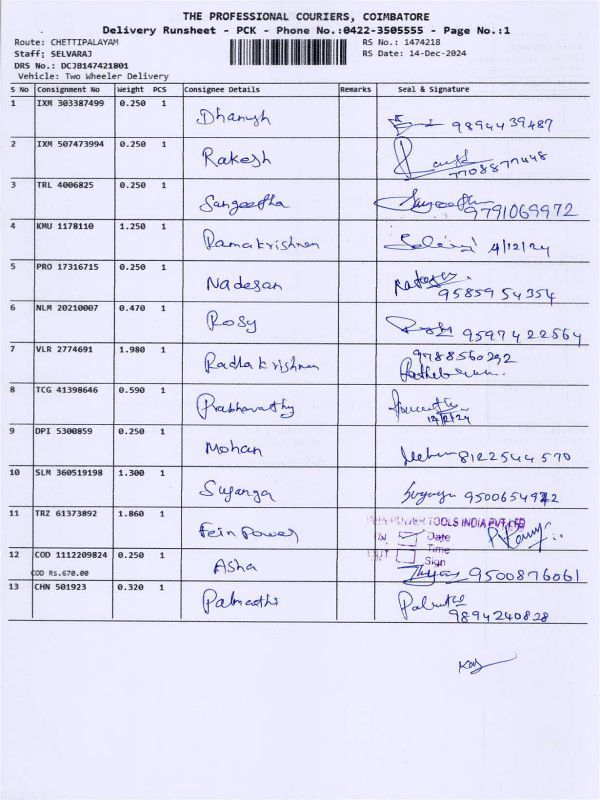 THE PROFESSIONAL COURIERS, COIMBATORE
Delivery Runsheet - PCK - Phone No.:0422-3505555 - Page No.:1
Route: CHETTIPALAYAM RS No.: 1474218
Staff: SELVARAJ RS Date: 14-Dec-2024
DRS No.: DCJB147421801
Vehicle: Two Wheeler Delivery
S No Consignment No Weight PCS Consignee Details Remarks Seal & Signature
1 IXM 303387499 0.250 1 Dhanush 9894439487
2 IXM 507473994 0.250 1 Rakesh 7708877448
3 TRL 4006825 0.250 1 Sangeetha 9791069972
4 KMU 1178110 1.250 1 Ramakrishnan 14/12/24
5 PRO 17316715 0.250 1 Nadesan 9585954354
6 NLM 20210007 0.470 1 Rosy 9597422564
7 VLR 2774691 1.980 1 Radhakrishnan 9788560292
8 TCG 41398646 0.590 1 Prabhavathy 14/12/24
9 DPI 5300859 0.250 1 Mohan 8122544570
10 SLM 360519198 1.300 1 Suganya 9500654972
11 TRZ 61373892 1.860 1 Fein Power
FEIN POWER TOOLS INDIA PVT LTD
IN Date
Time
OUT Sign
12 COD 1112209824 0.250 1 Asha 9500876061
COD Rs.670.00
13 CHN 501923 0.320 1 9894240828